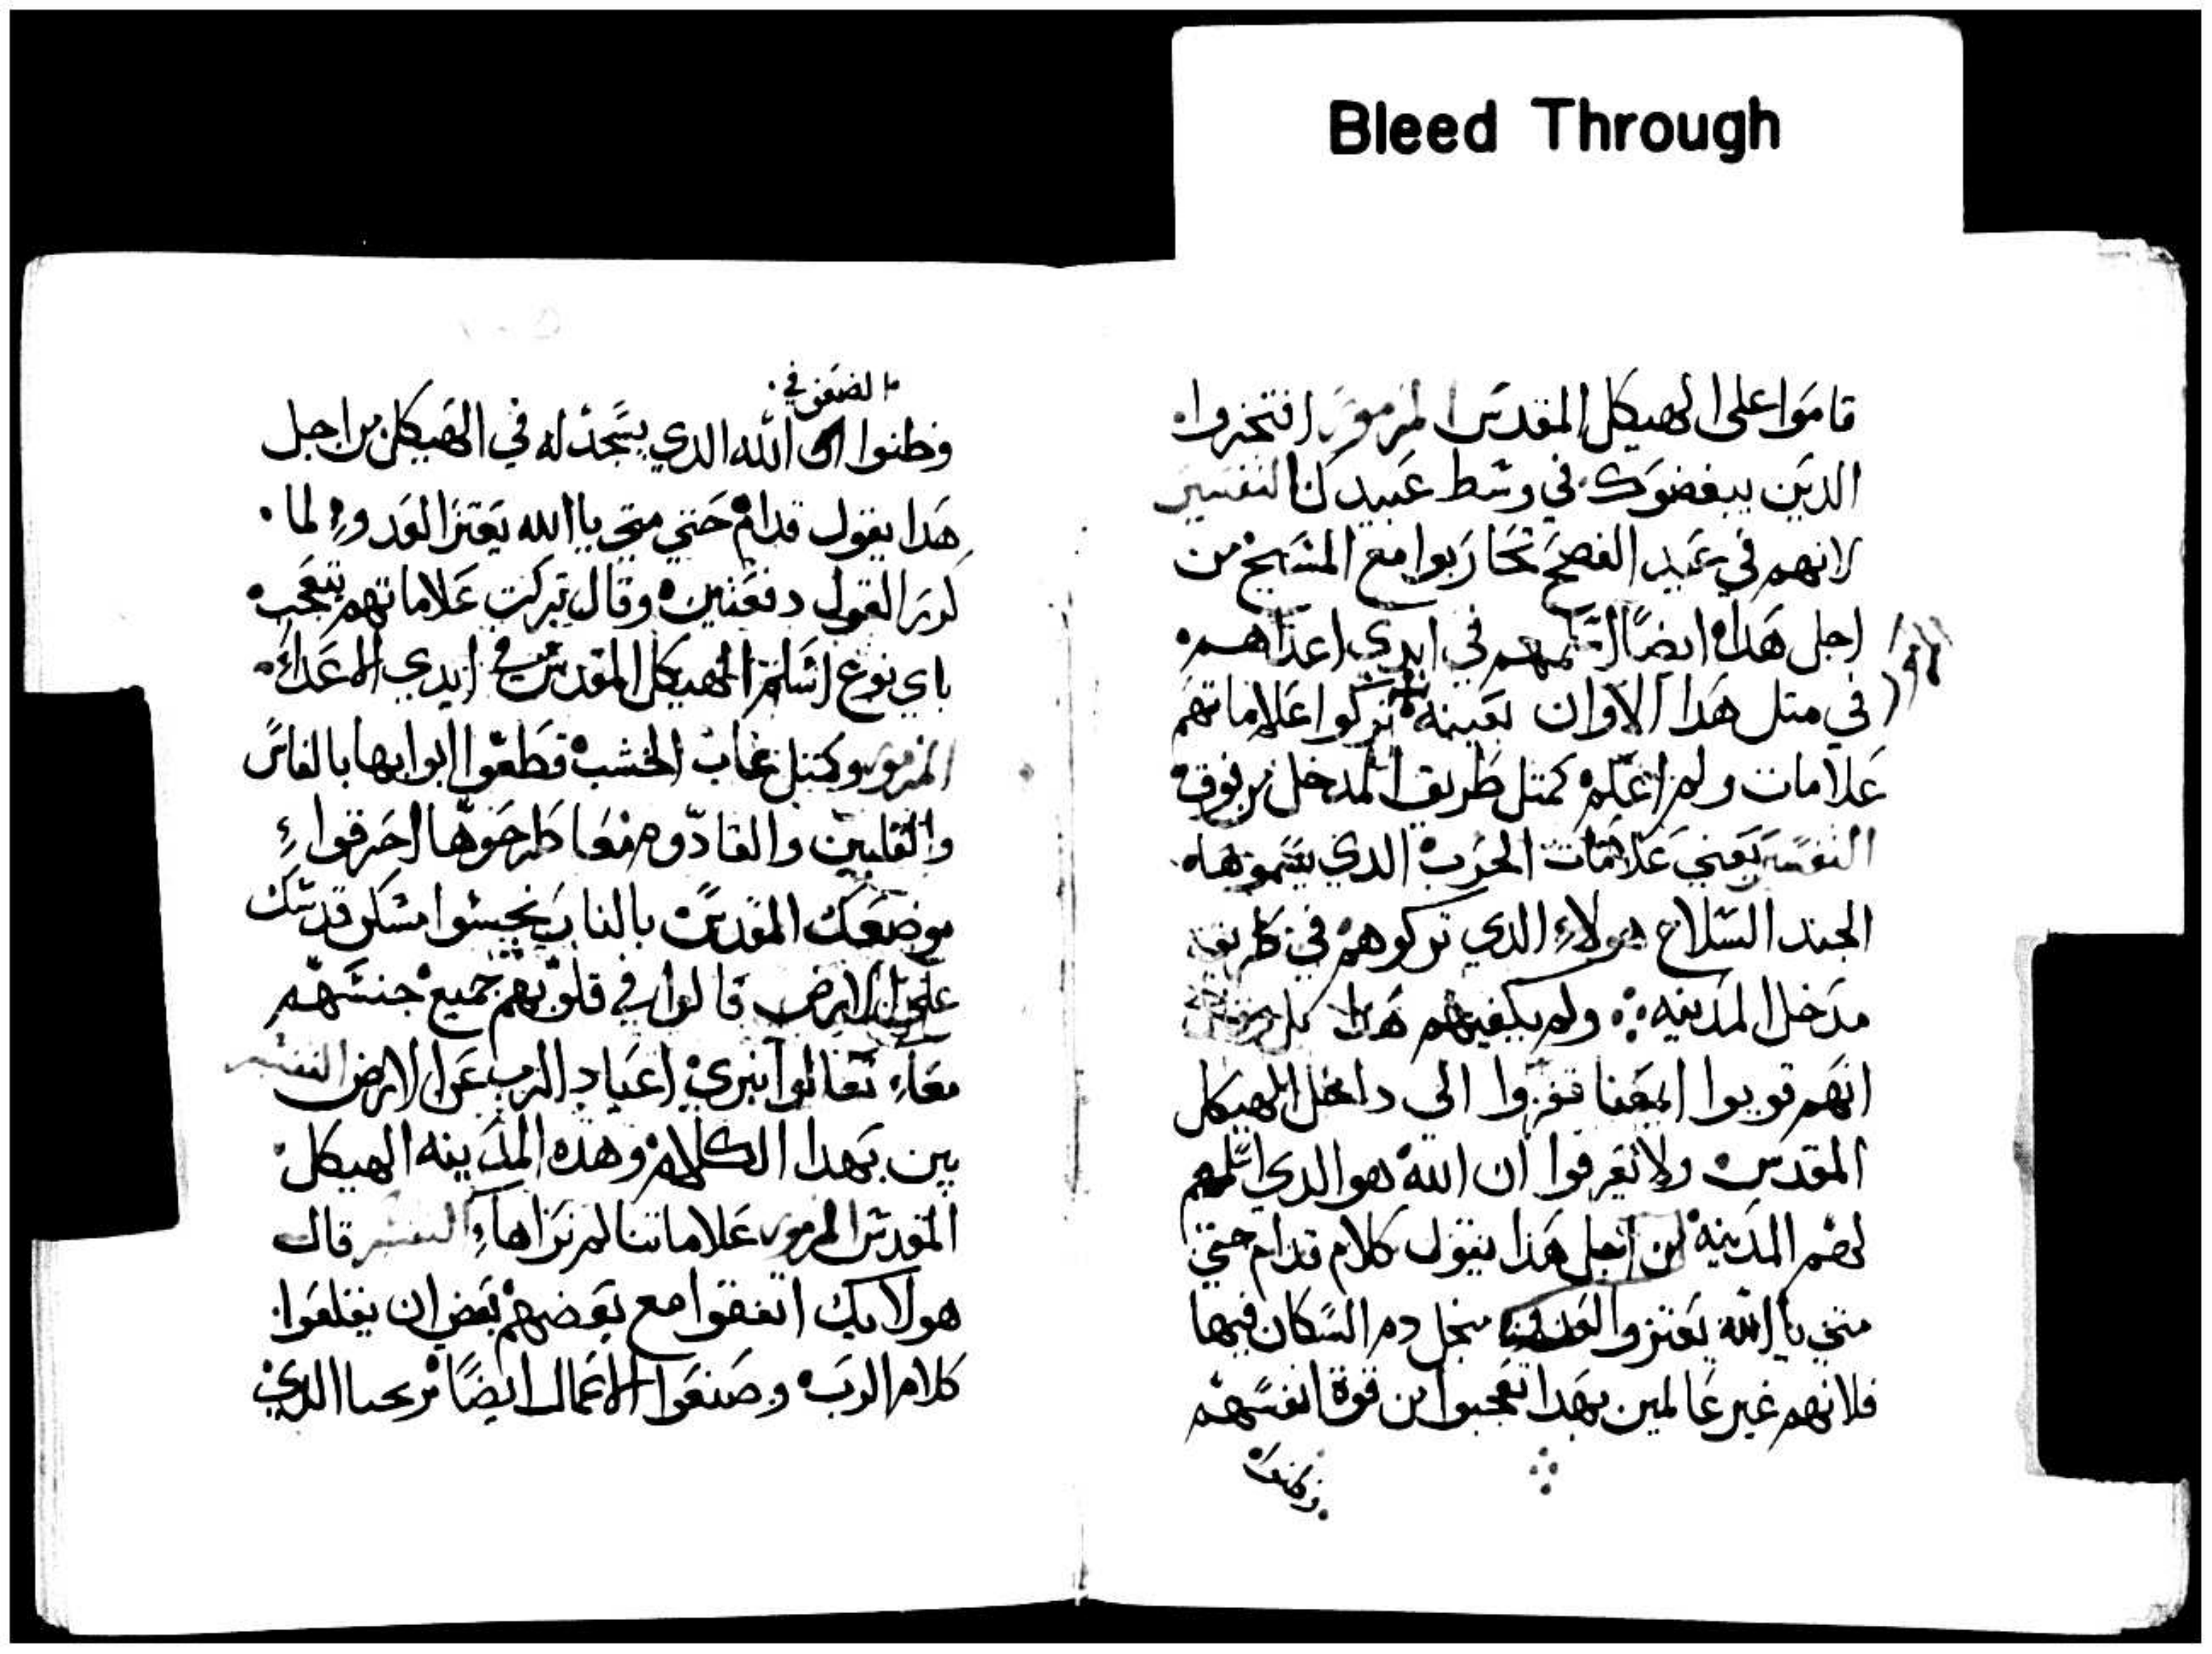 Bleed Through
قاموا على الهيكل المقدس المزمور افتخروا
الدين يبغضوك في وسط عيدك التفسير
لانهم في عيد الفصح تحاربوا مع المسيح من
اجل هدا ايضا اسلمهم في ايدي اعداهم
في متل هدا الاوان بعينه تركوا علاماتهم
علامات ولم اعلم كمتل طريق المدخل من فوق
التفسير يعني علامات الحرب الدي يسموها
الجند السلاح هولاء الدي تركوهم في طريق
مدخل المدينه ولم يكفيهم هدا بل
انهم قوبوا الى داخل الهيكل
المقدس ولا تعرفوا ان الله هو الدي اسلم
لهم المدينة من اجل هدا يقول كلام قدام حتي
متي يا الله يعتز والعدو منجل دم السكان فيها
فلانهم غير عالمين بهدا تعجبوا من قوة انفسهم
وظنوا
الضعف في
وظنوا ان الله الدي يسجد له في الهيكل من اجل
هدا يقول قدام حتي متي يا الله يعتز العدو لما
كرر القول دفعتين وقال تركت علاماتهم يتعجب
باي نوع اسلم الهيكل المقدس في ايدي الاعداء
المزمور وكمتل غاب الخشب قطعوا ابوابها بالفاس
والقلبين والقادوم معا طرحوها احرقوا
موضعك المقدس بالنار نجسوا مسكن قدسك
على الارض قالوا في قلوبهم جميع جنسهم
معا تعالوا نبري اعياد الرب عن الارض التفسير
بين بهدا الكلام وهده المدينه الهيكل
المقدس المزمور علاماتنا لم نراها التفسير قال
هولايك اتفقوا مع بعضهم بعض ان يفلعوا
كلام الرب وصنعوا الاعمال ايضا الدي